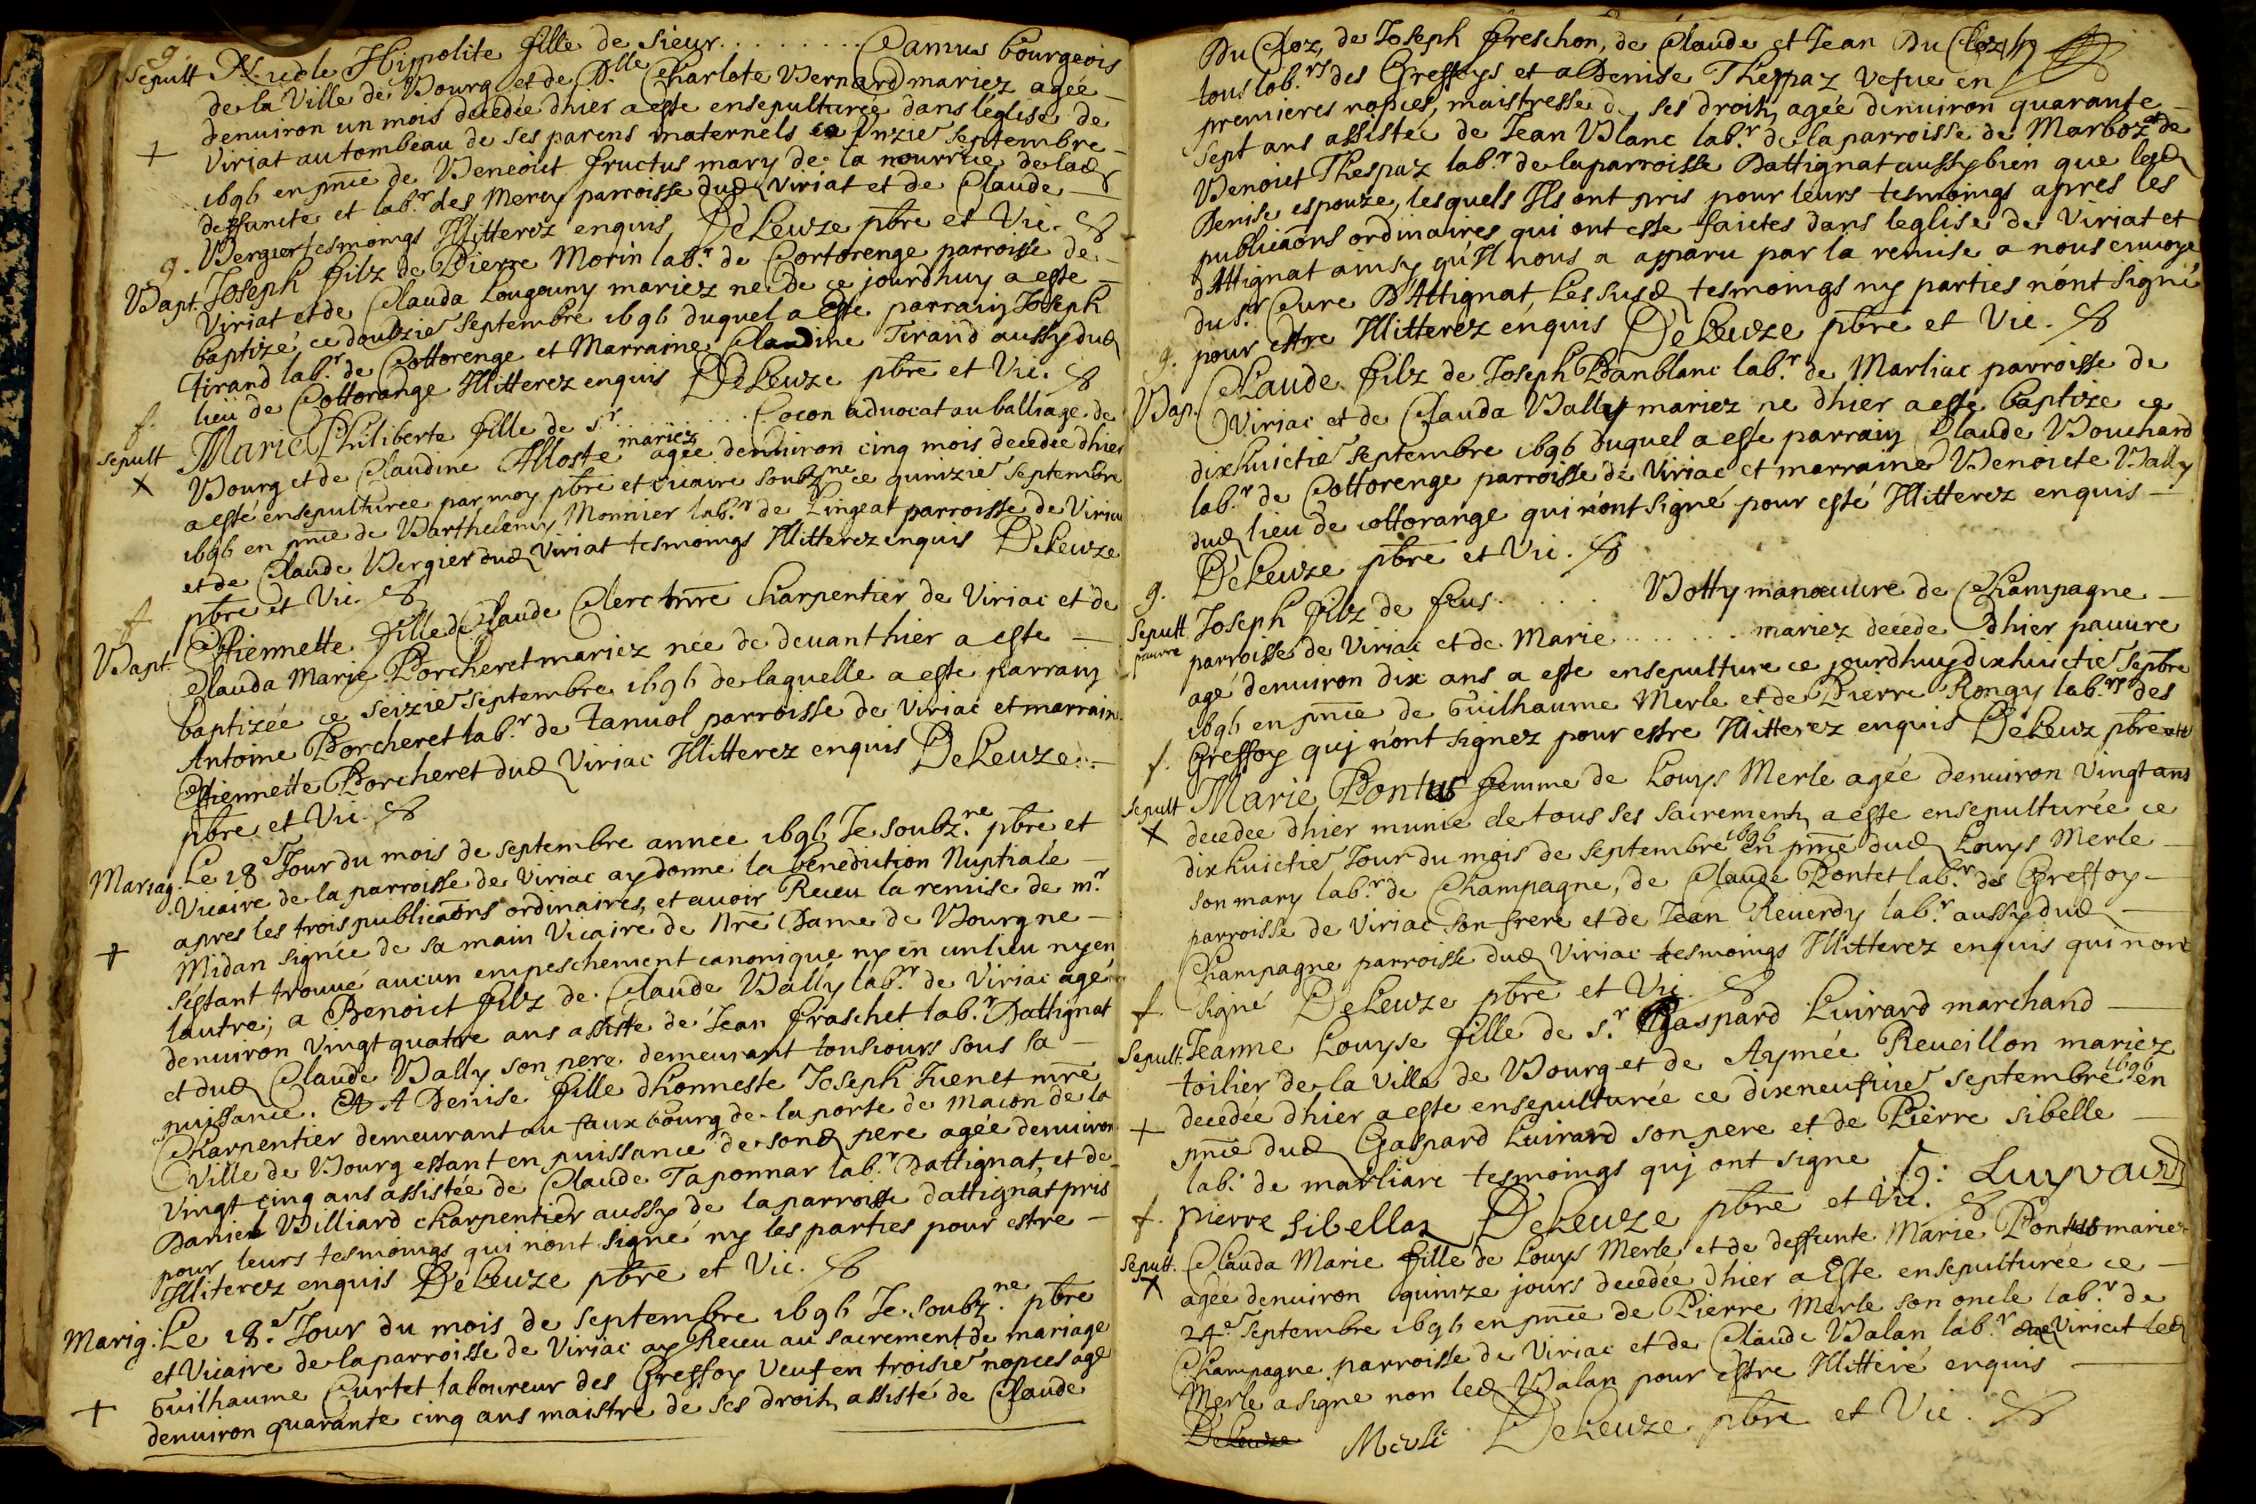 g.
sepult Nicole Hippolite fille de Sieur . . . . . . . . Camus bourgeois
de la Ville de Bourg et de D.lle Charlote Bernard mariez agée
denuiron un mois decedée dhier a esté ensepulturée dans léglise de
+ Viriat au tombeau de ses parens maternels ce septembre
1696 en pñce de Benoict fructus mary de la nourrice de lad
deffuncte et lab.r des Mery parroisse dud Viriat et de Claude
Vergier tesmoings Illitterez enquis DeLeuze pbre et Vic.
g.
Bapt. Joseph filz de Pierre Morin lab.r de Cortorenge parroisse de
Viriat et de Clauda Lougouny mariez né de ce jourdhuy a esté
baptizé ce doubzie septembre 1696 duquel a esté parrain Joseph
tirand lab.r de Cottorenge et Marraine Claudine Tirand aussy dud
lieü de Cottorange Illitterez enquis DeLeuze pbre et Vic.
f.
sepult Marie Philiberte fille de S.r . . . . . . . Cocon advocat au balliage de
Bourg et de Claudine Alloste mariez agée denuiron cinq mois decedée dhier
X a esté ensepulturée par moy pbre et vicaire soubz.ne ce quinzie septembre
1696 en pñce de Barthelemy Monnier lab.r de Lingeat parroisse de Viriac
et de Claude Vergier dud Viriat tesmoings Illitterez enquis DeLeuze
pbre et Vic.
f.
Bapt. Estiennette fille de Claude Clerc mre Charpentier de Viriac et de
Clauda Marie Porcheret mariez née de deuanthier a esté
baptizée ce seizie septembre 1696 de laquelle a esté parrain
Antoine Porcheret lab.r de Tanuol parroisse de Viriac et marraine
Estiennette Porcheret dud Viriac Illitterez enquis DeLeuze
pbre et Vic.
Mariag. Le 18.e Jour du mois de septembre année 1696 Je soubz.ne pbre et
Vicaire de la parroisse de Viriac ay donné la bénédiction Nuptiale
apres les trois publicaõns ordinaires, et auoir Receu la remise de m.r
+ Midan signée de sa main Vicaire de Nrẽ Dame de Bourg ne
séstant trouué aucun empeschement canonique ny en un lieu ny en
lautre; a Benoict filz de Claude Bally lab.r de Viriac agé
denuiron Vingt quatre ans assisté de Jean fraschet lab.r Dattignat
et dud Claude Bally son pere demeurant tousiours sous sa
puissance. Et A Denise fille dhonneste Joseph Juenet mrẽ
Charpentier demeurant au faux bourg de la porte de macon de la
Ville de Bourg estant en puissance de sond pere agée denuiron
Vingt cinq ans assistée de Claude Taponnar lab.r Dattignat, et de
Daniel Billiard charpentier aussy de la parroisse dattignat pris
pour leurs tesmoings qui nont signé ny les parties pour estre
Illiterez enquis DeLeuze pbre et Vic.
Mariag. Le 18.e Jour du mois de septembre 1696 Je soubz.ne pbre
et Vicaire de la parroisse de Viriac ay Receu au sacrement de mariage
Guilhaume Curtet laboureur des Greffoy Veuf en troisie nopces agé
+ denuiron quarante cinq ans maistre de ses droitz assisté de Claude
Du Cloz, de Joseph freschon, de Claude et Jean Du Cloz
tous lab.rs des Greffeys et a Denise Thespaz vefue en
premieres nopces, maistresse de ses droitz agée denuiron quarante
sept ans assistée de Jean Blanc lab.r de la parroisse de Marboz et de
Benoict Thespaz lab.r de la parroisse Dattignat aussy bien que lad
Denise espouze, lesquels Ils ont pris pour leurs tesmoings apres les
publicaõns ordinaires qui ont esté faictes dans leglise de Viriat et
dAttignat ainsy qu'Il nous a apparu par la remise a nous enuoyé
du S.r Curé DAttignat, Les susd tesmoings ny parties nónt signé
pour estre Illitterez énquis DeLeuze pbre et Vic.
g.
Bap. Claude filz de Joseph Panblanc lab.r de Marliac parroisse de
Viriac et de Clauda Bally mariez né dhier a esté baptizé ce
dixhuictie septembre 1696 duquel a esté parrain Claude Bouchard
lab.r de Cottorenge parroisse de Viriac et marraine Benoicte Bally
dud lieu de cottorange qui nónt signé pour esté Illitterez enquis
DeLeuze pbre et Vic.
g.
Sepult Joseph filz de feus . . . . . Botty manœuure de Champagne
pauure parroisse de Viriac et de Marie . . . . . . . . mariez decedé dhier pauure
agé denuiron dix ans a esté ensepulturé ce jourdhuy dixhuictie sepbre
1696 en pñce de Guilhaume Merle et de Pierre Rongy lab.rs des
Greffoy quj nónt signez pour estre Illitterez enquis DeLeuz pbre et Vic
f.
sepult Marie Pontus femme de Louys Merle agée denuiron Vingt ans
X decedée dhier munie de tous ses sacrements a esté ensepulturée ce
dixhuictie Jour du mois de septembre 1696 en pñce dud Louys Merle
son mary lab.r de Champagne, de Claude Pontet lab.r des Greffoy
parroisse de Viriac son frere et de Jean Reuerdy lab.r aussy dud
Champagne parroisse dud Viriac tesmoings Illitterez enquis qui nont
signé DeLeuze pbre et Vic
f.
Sepult. Jeanne Louyse fille de S.r Gaspard Luirard marchand
toilier de la ville de Bourg et de Aymée Reueillon mariez
decedée dhier a esté ensepulturée ce dixneufuie septembre 1696 en
+ pñce dud Gaspard Luirard son pere et de Pierre sibelle
lab.r de marliarc tesmoings quj ont signé g: Luyvard
pierre sibellaz DeLeuze pbre et Vic.
f.
Sepult. Clauda Marie fille de Louys Merle et de deffunte Marie Pontus mariez
X agée denuiron quinze jours decedée dhier a Esté ensepulturée ce
24.e septembre 1696 en pñce de Pierre Merle son oncle lab.r de
Champagne parroisse de Viriac et de Claude Balan lab.r de Viriat led
Merle a signé non led Balan pour estre Illitteré enquis
DeLeuze Merle DeLeuze pbre et Vic.